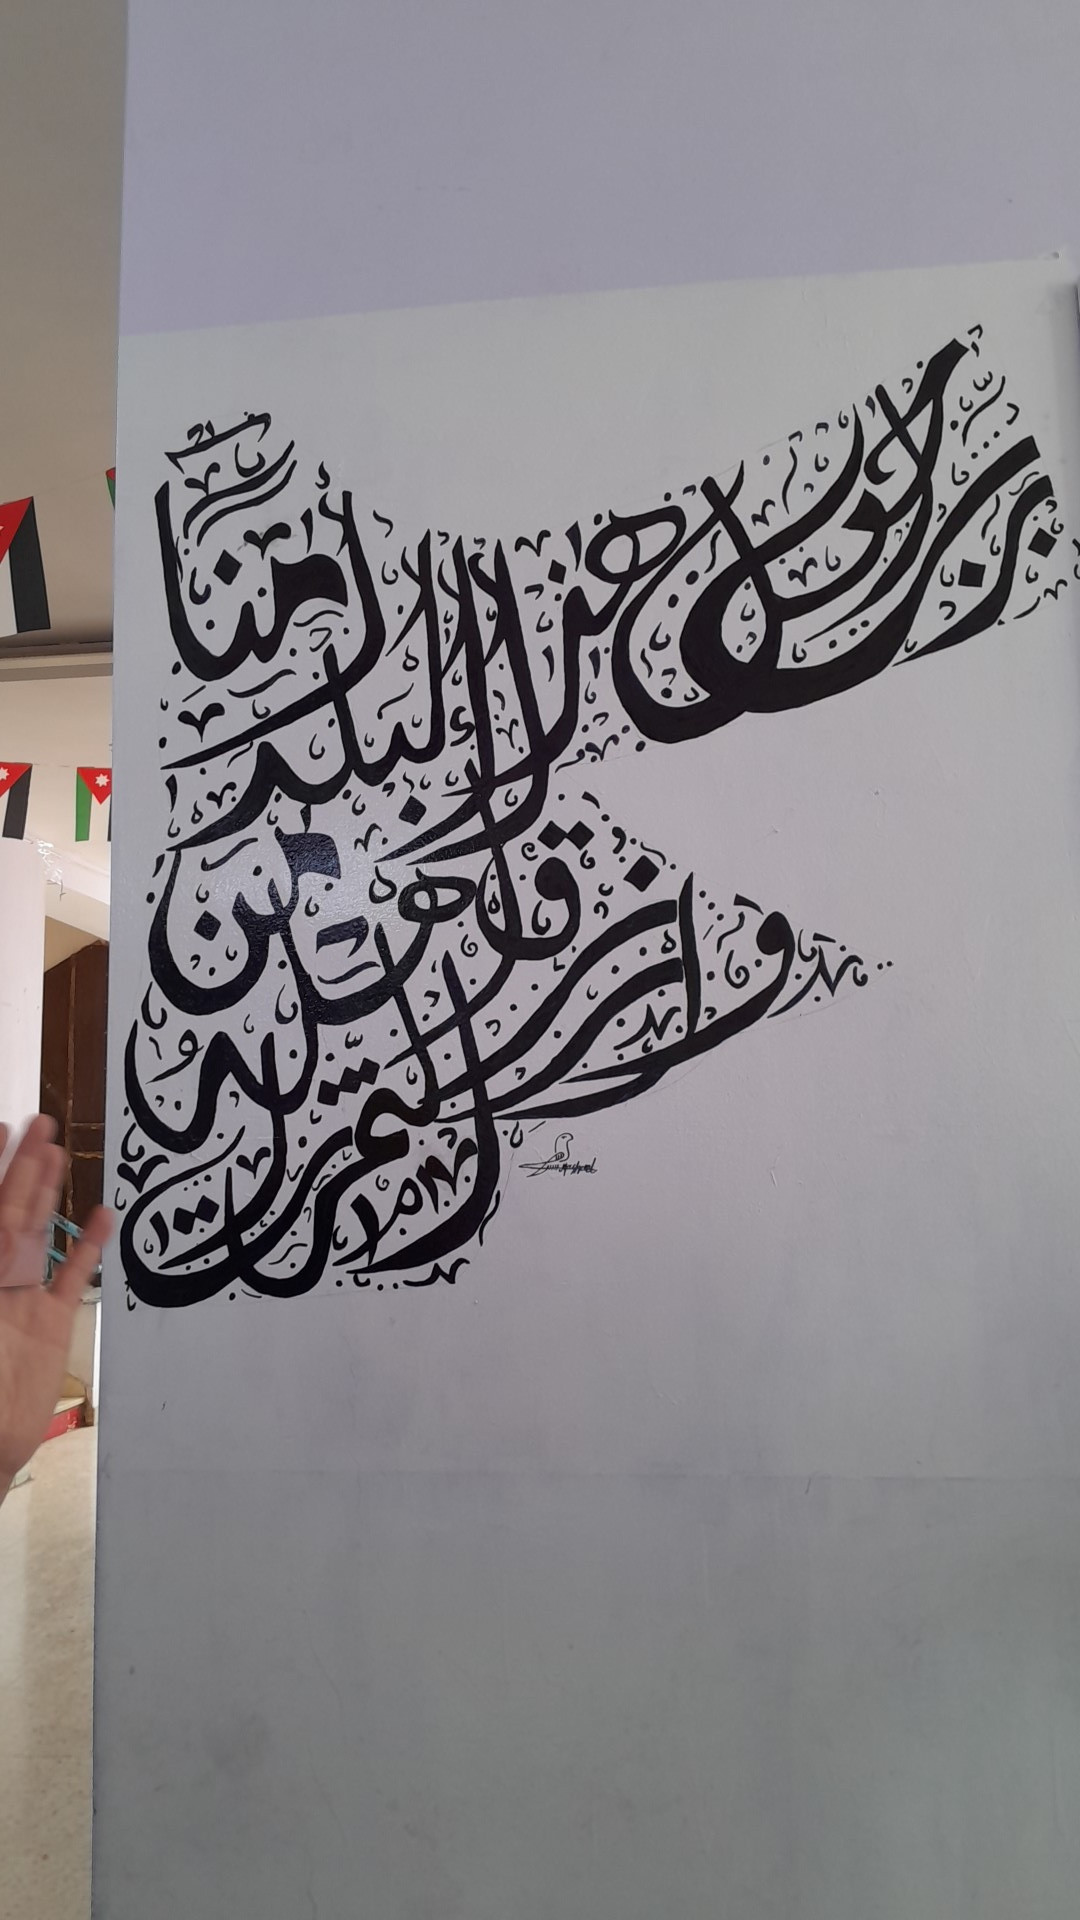 رب اجعل هذا البلد أمنا
وارزق أهله من الثمرات